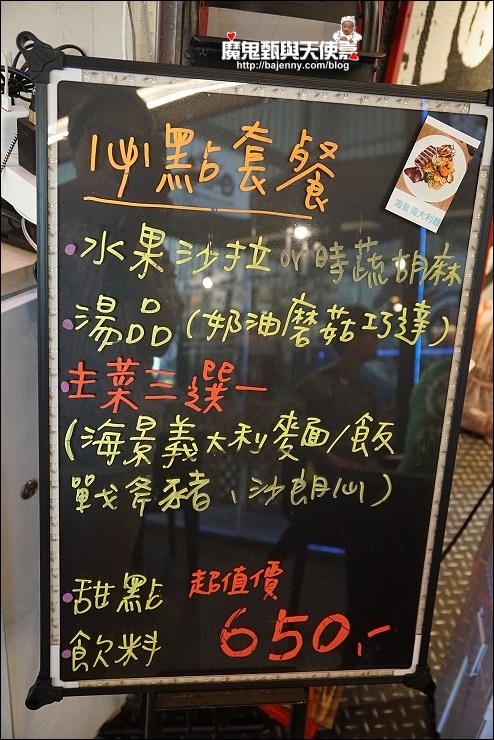 魔鬼甄與天使嘉
http://bajenny.com/blog
必點套餐
海景義大利麵
水果沙拉 or 時蔬胡麻
湯品(奶油磨菇巧達)
主菜三選一
(海景義大利麵/飯
戰斧豬、沙朗仙)
甜點 超值價
飲料 650,-